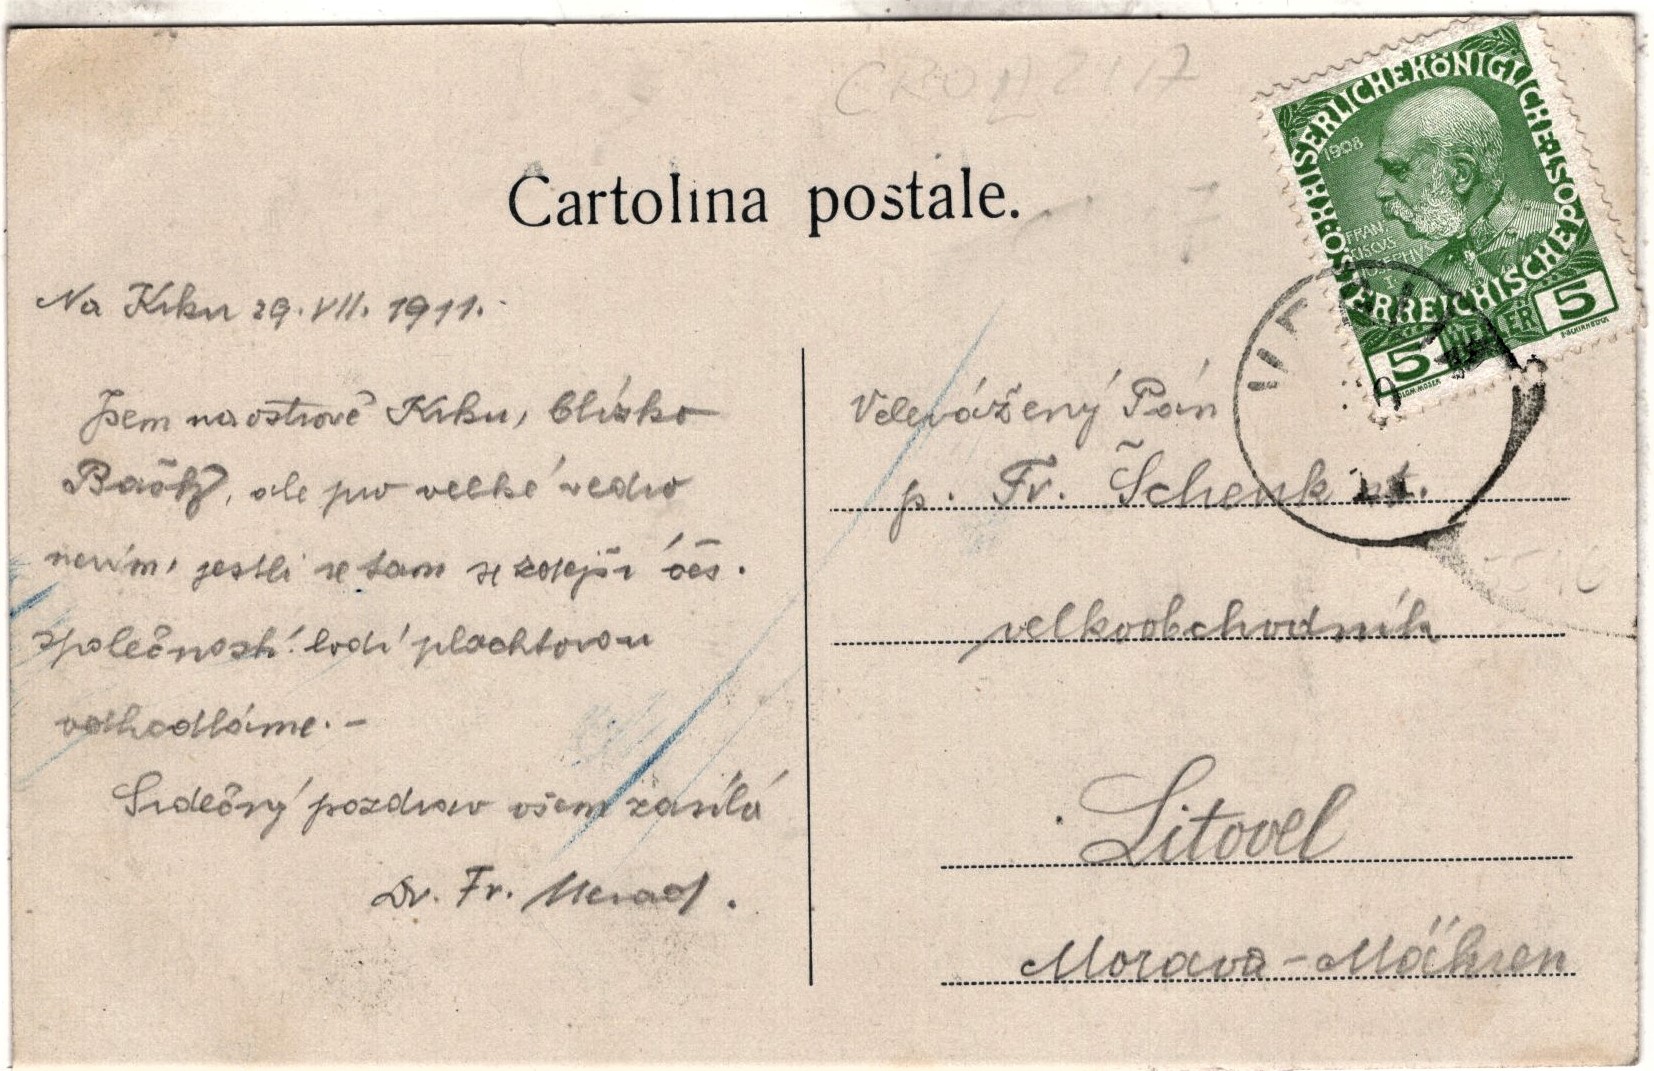 Cartolina postale.
KAISERLICHE KÖNIGLICHE ÖSTERREICHISCHE POST
1908
FRAN
CISCVS
IOSEPHVS
I
5 HELLER 5
Na Krku 29. VII. 1911.-
Jsem na ostrově Krku, blízko
ale pro velké vedro
nevím, jestli se tam se zdejší čes.
společností lodí plachtovou
odhodláme.-
Srdečný pozdrav všem zasílá
Dr. Fr.
Velevážený Pán
p. Fr. Schenk st.
velkoobchodník
Litovel
Morava-Mähren